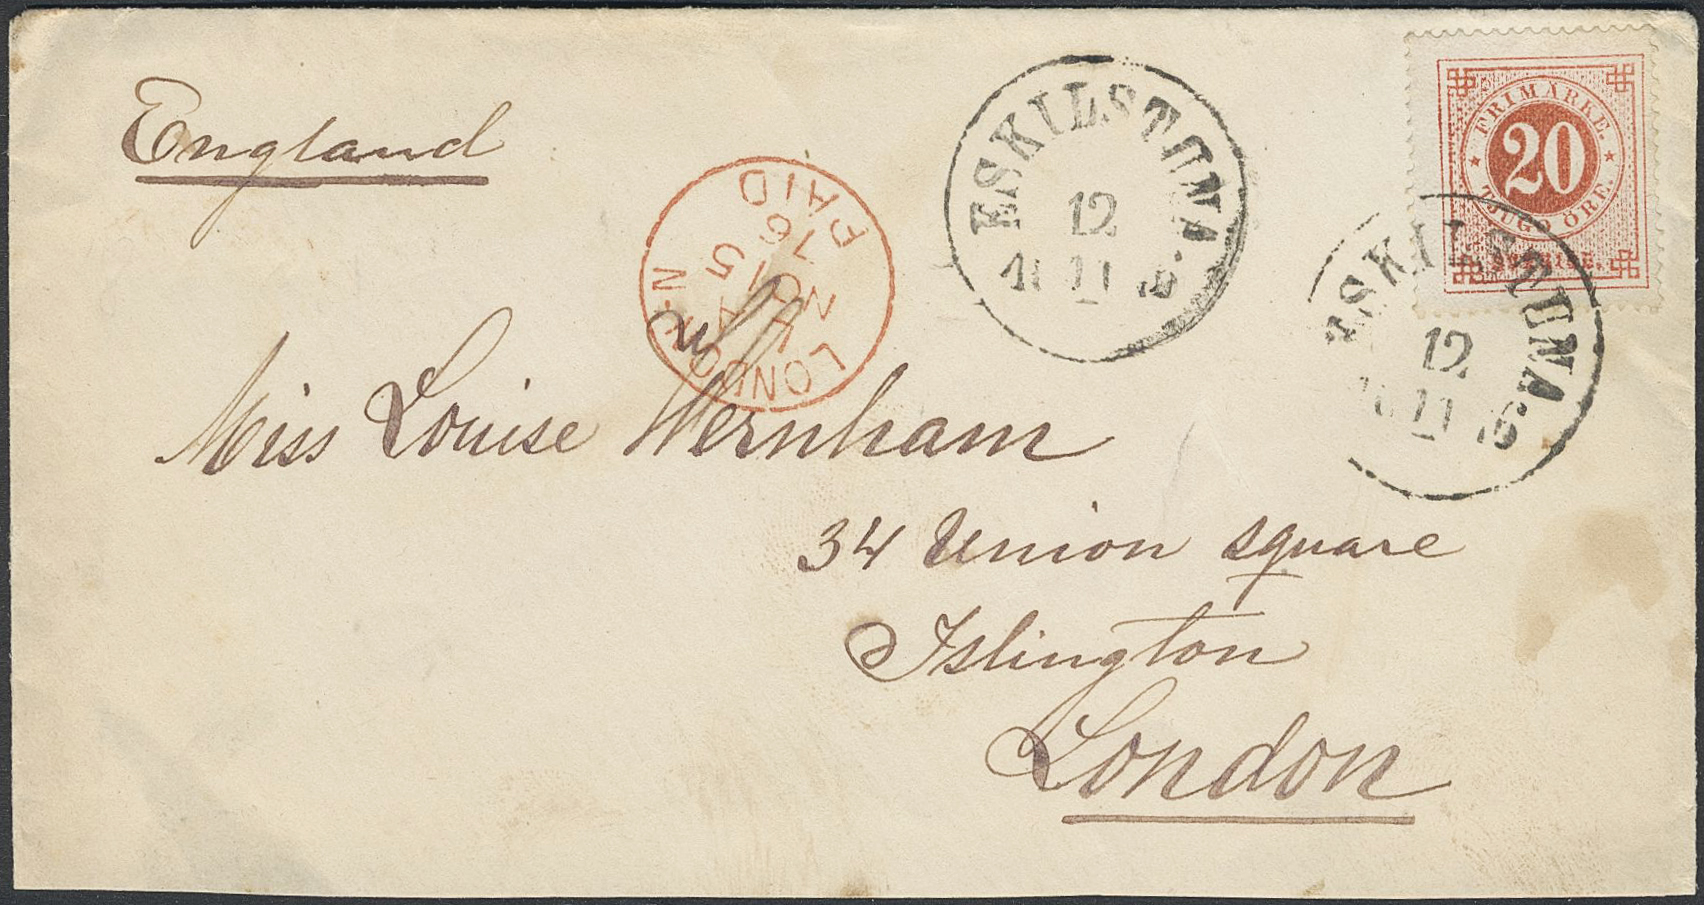 England
Miss Louise Wernham
34 Union square
Islington
London
LONDON-N
PAID
15 NO 76
ESKILSTUNA.
12
11
FRIMÄRKE.
20
TJUGO ÖRE.
SVERIGE.
ESKILSTUNA.
12
11